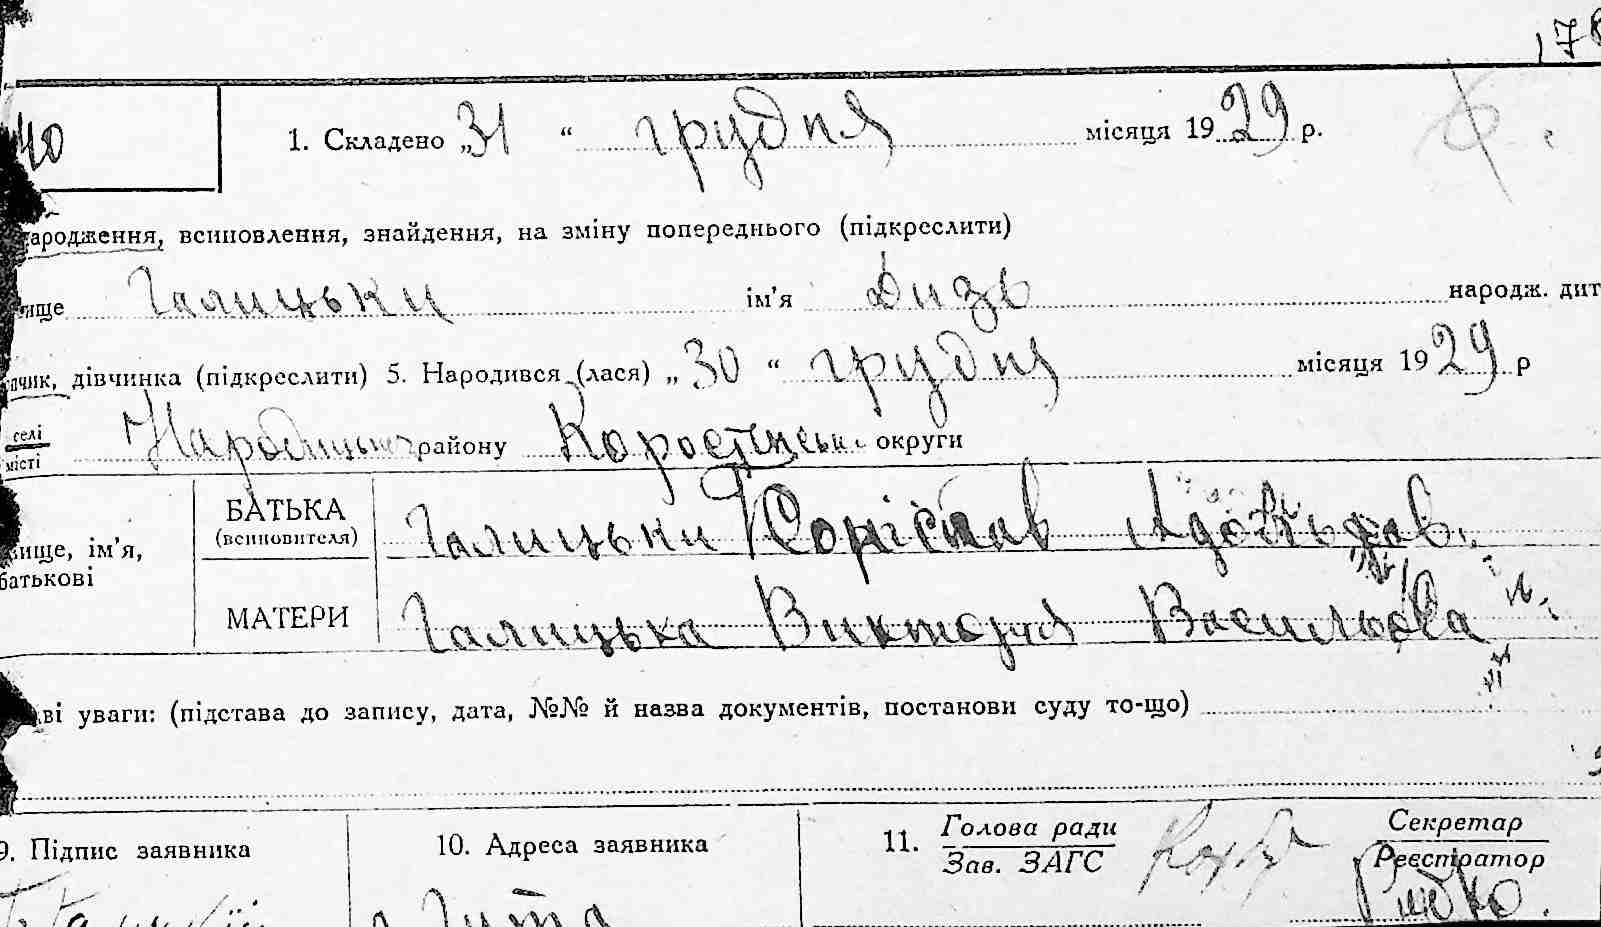 17
40
1. Складено „31“ грудня місяця 1929 р.
ародження, всиновлення, знайдення, на зміну попереднього (підкреслити)
ище Галицьки ім’я Дизь народж. дит
пчик, дівчинка (підкреслити) 5. Народився (лася) „30“ грудня місяця 1929 р
селі
місті Народицьк району Коростенськ округи
БАТЬКА
(всиновителя) Галицьки Адольфов.
вище, ім’я,
батькові
МАТЕРИ Галицька Викторія Васильева
ві уваги: (підстава до запису, дата, №№ й назва документів, постанови суду то-що)
9. Підпис заявника 10. Адреса заявника 11. Голова ради Секретар
Зав. ЗАГС Реєстратор